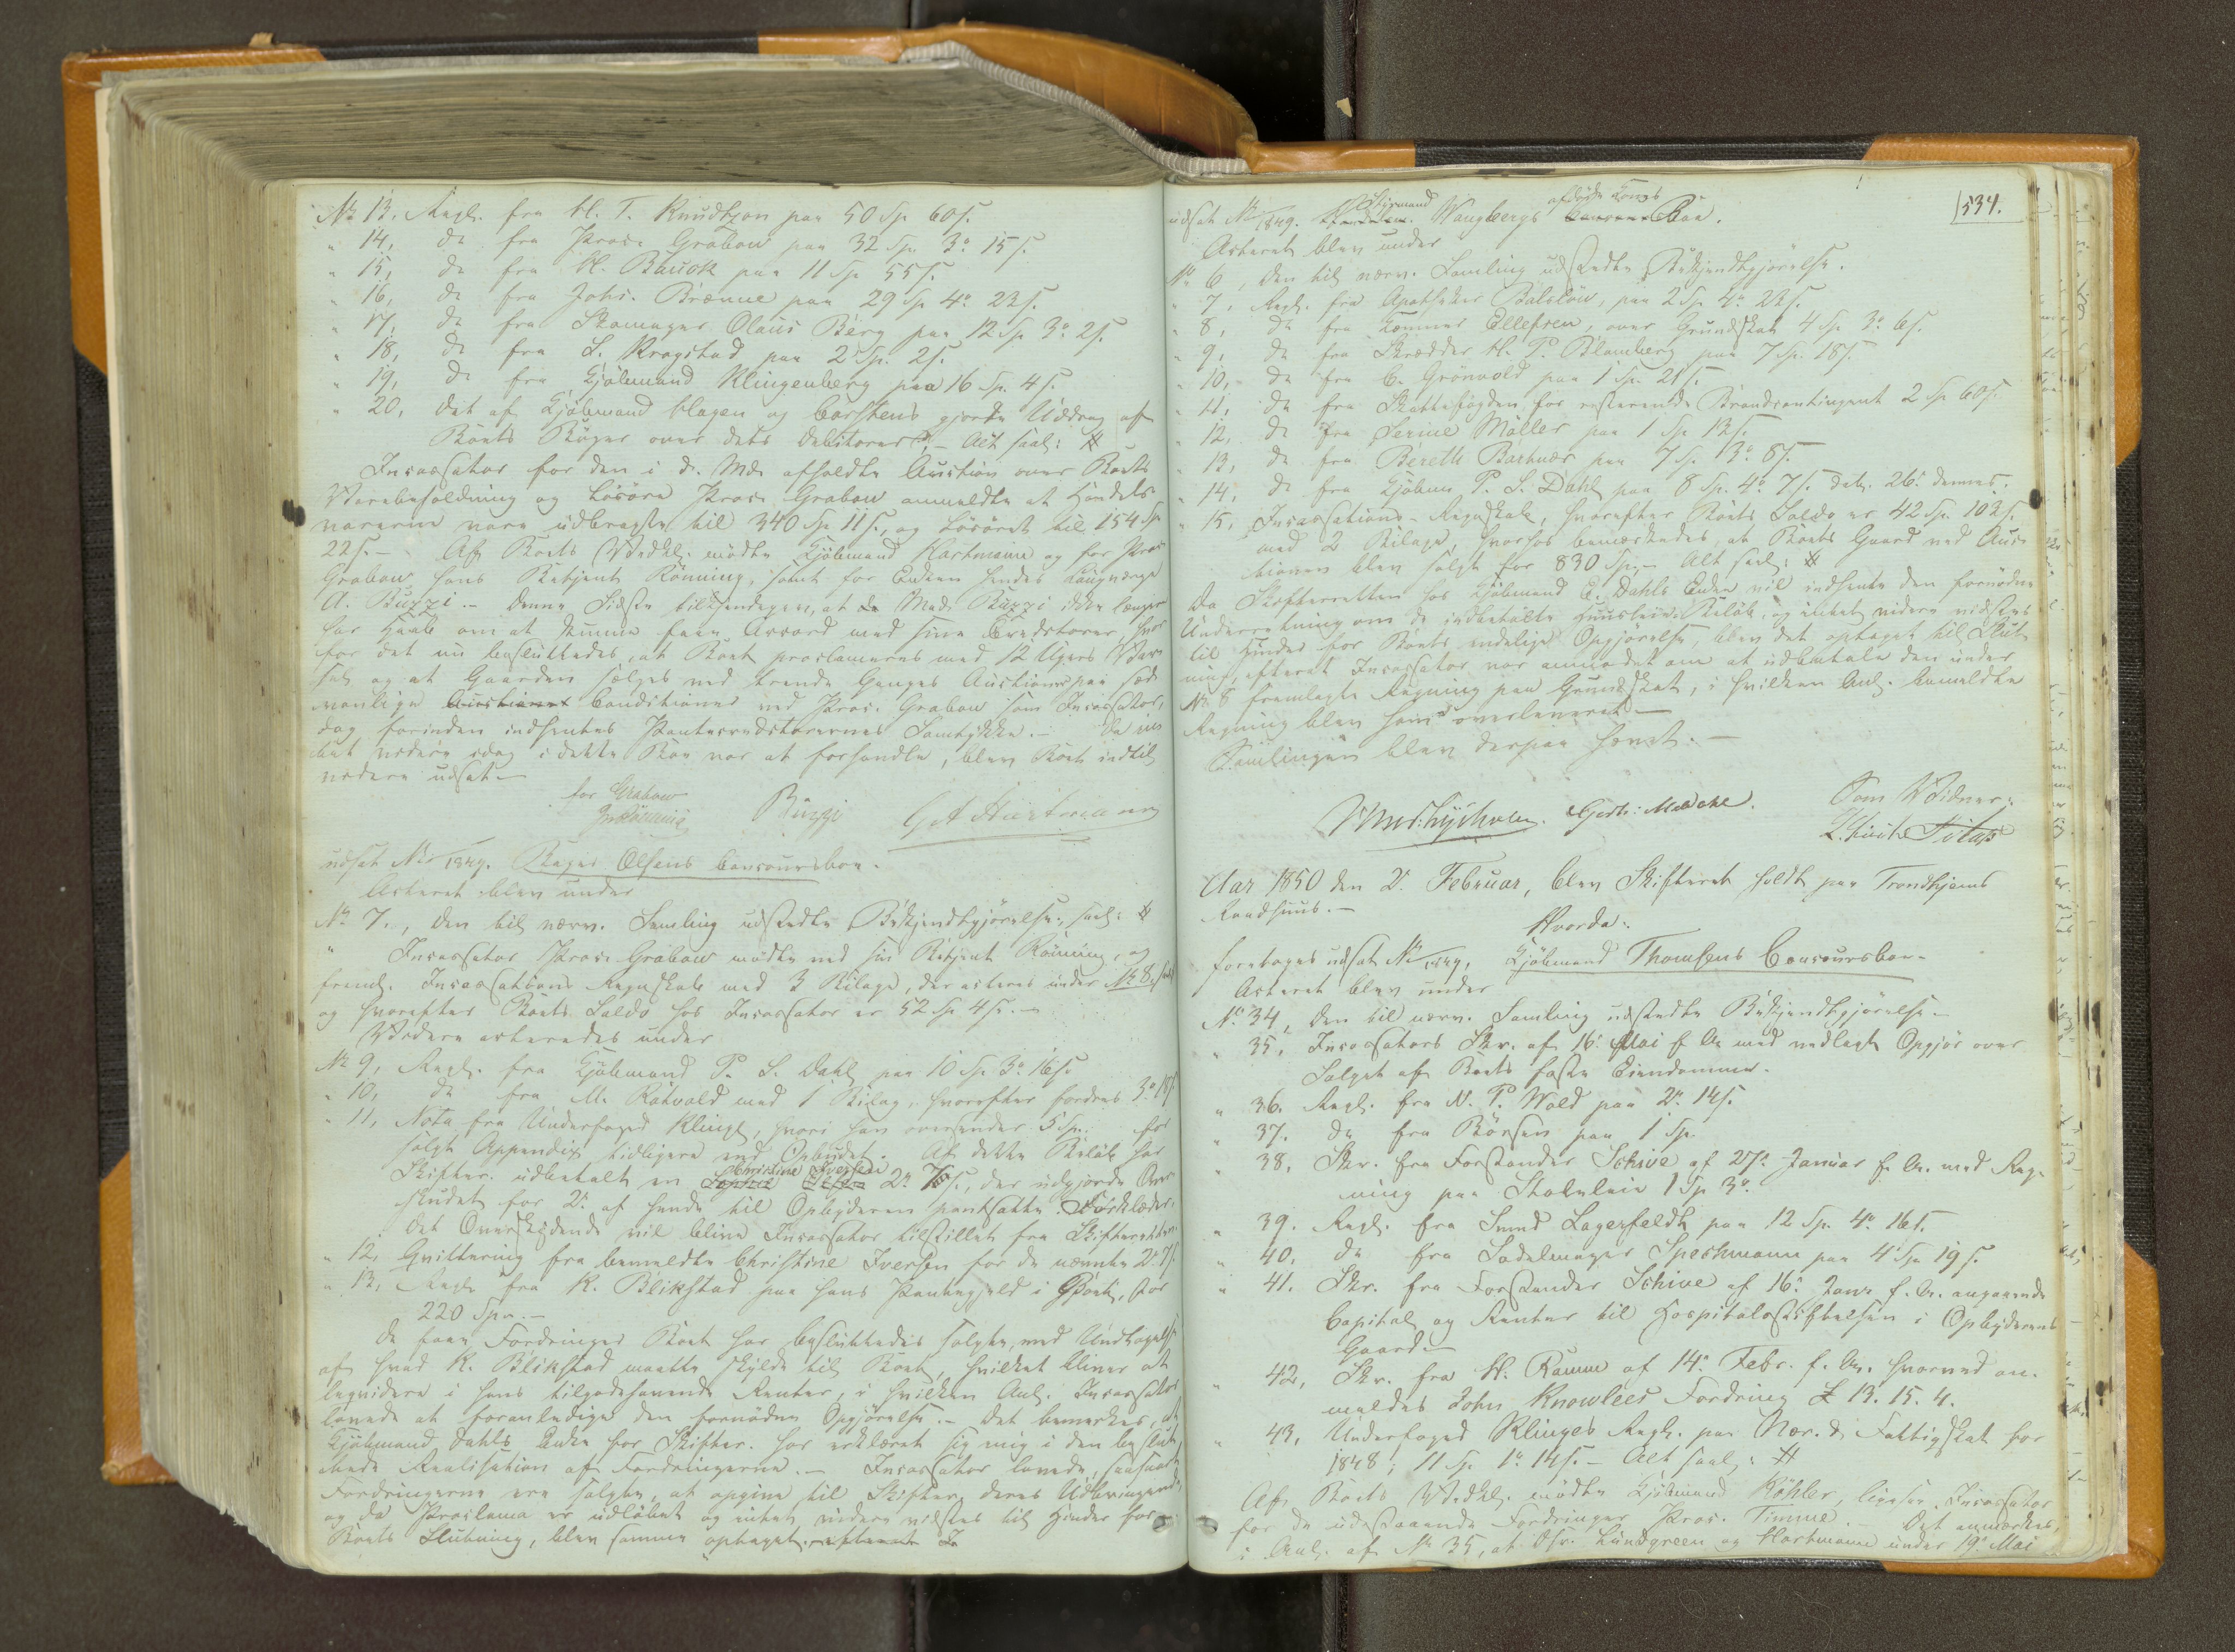 No 13, Regl. fra H. T. Knudtzon paa 50 Sp 60 s.
" 14, do fra Proc. Grabow paa 32 Sp. 3o 15 s.
" 15, do fra H. Bauck paa 11 Sp 55 s.
" 16, do fra Johs. Brænne paa 29 Sp 4o 22 s.
" 17, do fra Skomager Olaus Berg paa 12 Sp 3o 2 s.
" 18, do fra L. Krogstad paa 2 Sp. 2 s.
" 19, do fra Kjöbmand Klingenberg paa 16 Sp. 4 s.
" 20, det af Kjöbmand Hagen og Carstens gjorte Uddrag af
Boets Böger over dets Debitorer, – Alt saal: #
Incassator for den i d. Md. afholdte Auction over Boets
Varebeholdning og Lösöre Proc. Grabow anmeldte at Handels-
varerne vare udbragte til 340 Sp 11 s., og Lösöret til 154 Sp
22 s. – Af Boets Vedk. mödte Kjöbmand Hartmann og for Proc.
Grabow hans Betjent Rönning, samt for Enken hendes Laugværge
A. Buzzi. – Denne Sidste tilkjendegav, at Mad. Buzzi ikke længer
har Haab om at kunne faae Accord med sine Creditorer, hvor
for det nu besluttedes, at Boet proclameres med 12 Ugers Var-
sel og at Gaarden sælges ved trende Ganges Auctioner paa sæd-
vanlige Conditioner ved Proc. Grabow som Incassator,
dog forinden indhentes Panthecreditorernes Samtykke. – Da in-
tet videre idag i dette Boe var at forhandle, blev Boet indtil
videre udsat. –
for Grabow
Rönning Buzzi G A Hartmann
udsat No /1849. Bager Olsens Concoursboe.
Acteret blev under
No 7., den til nærv. Samling udstedte Bekjendtgjörelse, saal: #
" Incassator Proc. Grabow mödte ved sin Betjent Rönning, og
freml. Incassations Regnskab med 3 Bilage, der acteres under No 8, saal
og hvorefter Boets Saldo hos Incassator er 52 Sp 4 s. –
Videre acteredes under
No 9, Regl. fra Kjöbmand P. S. Dahl paa 10 Sp 3o 16 s.
" 10, do fra M. Rotvold med 1 Bilag, hvorefter fordres 3o 18 s
" 11, Nota fra Underfoged Klinge, hvori han oversender 5 Sp. for
solgt Appendix tidligere ved Opbudet. Af dette Beløb har
Skifter. udbetalt en Christine Iversen 2o 7 s., der udgjorde Over
skudet for 2o af hende til Opbyderen pantsatte Forklæder.
Det Overskydende vil blive Incassator tilstillet fra Skifteretten.
" 12, Qvittering fra bemeldte Christine Iversen for de nævnte 2o 7 s
" 13, Regl. fra K. Blikstad paa hans Pantegjeld i Boet, stor
220 Spr. –
De faae Fordringer Boet har besluttedes solgte, med Undtagelse
af hvad K. Blikstad maatte skylde til Boet, hvilket bliver at
liqvidere i hans tilgodehavende Renter, i hvilken Anl. Incassator
lovede at foranledige den fornödne Opgjörelse. – Det bemærkes, at
Kjöbmand Dahls Enke for Skifter. har erklæret sig enig i den beslut-
tede Realisation af Fordringerne. – Incassator lovede, saasnart
Fordringerne ere solgte, at opgive til Skifter. deres Udbringende,
og da Proclama er udlöbet og intet videre vidstes til Hinder for
Boets Slutning, blev samme optaget.
534.
udsat No /1849. Styrmand Wangbergs afdöde Kones Boe.
Acteret blev under
No 6, den til nærv. Samling udstedte Bekjendtgjörelse.
" 7, Regl. fra Apotheker Balslöw, paa 2 Sp 4o 22 s.
" 8, do fra Kæmner Ellefsen, over Grundskat 4 Sp 3o 6 s.
" 9, do fra Skrædder H. P. Blomberg paa 7 Sp. 18 s.
" 10, do fra C. Grönvold paa 1 Sp. 21 s.
" 11, do fra Skattefogden for resterende Brandcontingent 2 Sp 60 s.
" 12, do fra Serine Möller paa 1 Sp 12 s.
" 13, do fra Bereth Barhues paa 7 Sp. 3o 8 s.
" 14, do fra Kjöbm. P. S. Dahl paa 8 Sp. 4o 7 s. dat. 26de dennes.
" 15, Incassations-Regnskab, hvorefter Boets Saldo er 42 Sp. 102 s.
med 2 Bilage, hvorhos bemærkedes, at Boets Gaard ved Auc-
tionen blev solgt for 830 Sp. – Alt saal: #
Da Skifteretten hos Kjöbmand C. Dahls Enke vil indhente den fornödne
Underretning om de indbetalte Huusleie-Belöb, og intet videre vidstes
til Hinder for Boets endelige Opgjörelse, blev det optaget til Slut-
ning, efterat Incassator var anmodet om at udbetale den under
No 8 fremlagte Regning paa Grundskat, i hvilken Anl. bemeldte
Regning blev ham overleveret. –
Samlingen blev derpaa hævet. –
Som Vidner:
Aar 1850 den 2. Februar, blev Skifteret holdt paa Trondhjems
Raadhuus. –
Hvorda:
foretoges udsat No /1849, Kjöbmand Thomsens Concoursboe –
Acteret blev under
No 34, den til nærv. Samling udstedte Bekjendtgjörelse –
" 35, Incassators Skr. af 16. Mai f. A. med vedlagt Opgjör over
Salget af Boets faste Eiendomme.
" 36. Regl. fra N. P. Wold paa 2o 14 s.
" 37. do fra Börsen paa 1 Sp.
" 38, Skr. fra Forstander Schive af 27. Januar f. A. med Reg-
ning paa Stoleleie 1 Sp 3o
" 39. Regl. fra Smed Lagerfeldt paa 12 Sp. 4o 16 s.
" 40, do fra Sadelmager Speckmann paa 4 Sp 19 s.
" 41. Skr. fra Forstander Schive af 16. Janr f. A. angaaende
Capital og Renter til Hospitalsstiftelsen i Opbyderens
Gaard –
" 42, Skr. fra H. Ramm af 14. Febr. f. A. hvorved an-
meldes John Knowlees Fordring £ 13. 15. 4.
" 43, Underfoged Klinges Regl. paa Nær. & Fattigskat for
1848, 11 Sp 1o 14 s. – Alt saal: #
Af Boets Vedk. mödte Kjöbmand Köhler, ligesaa Incassator
for de udestaaende Fordringer Proc. Timme. Det anmærkes,
i Anl. af No 35, at Lundgreen og Hartmann under 19. Mai